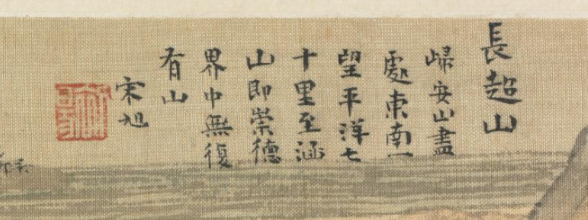 長超山
歸安山盡
處東南一
望平洋七
十里至涵
山即崇德
界中無復
有山
宋旭